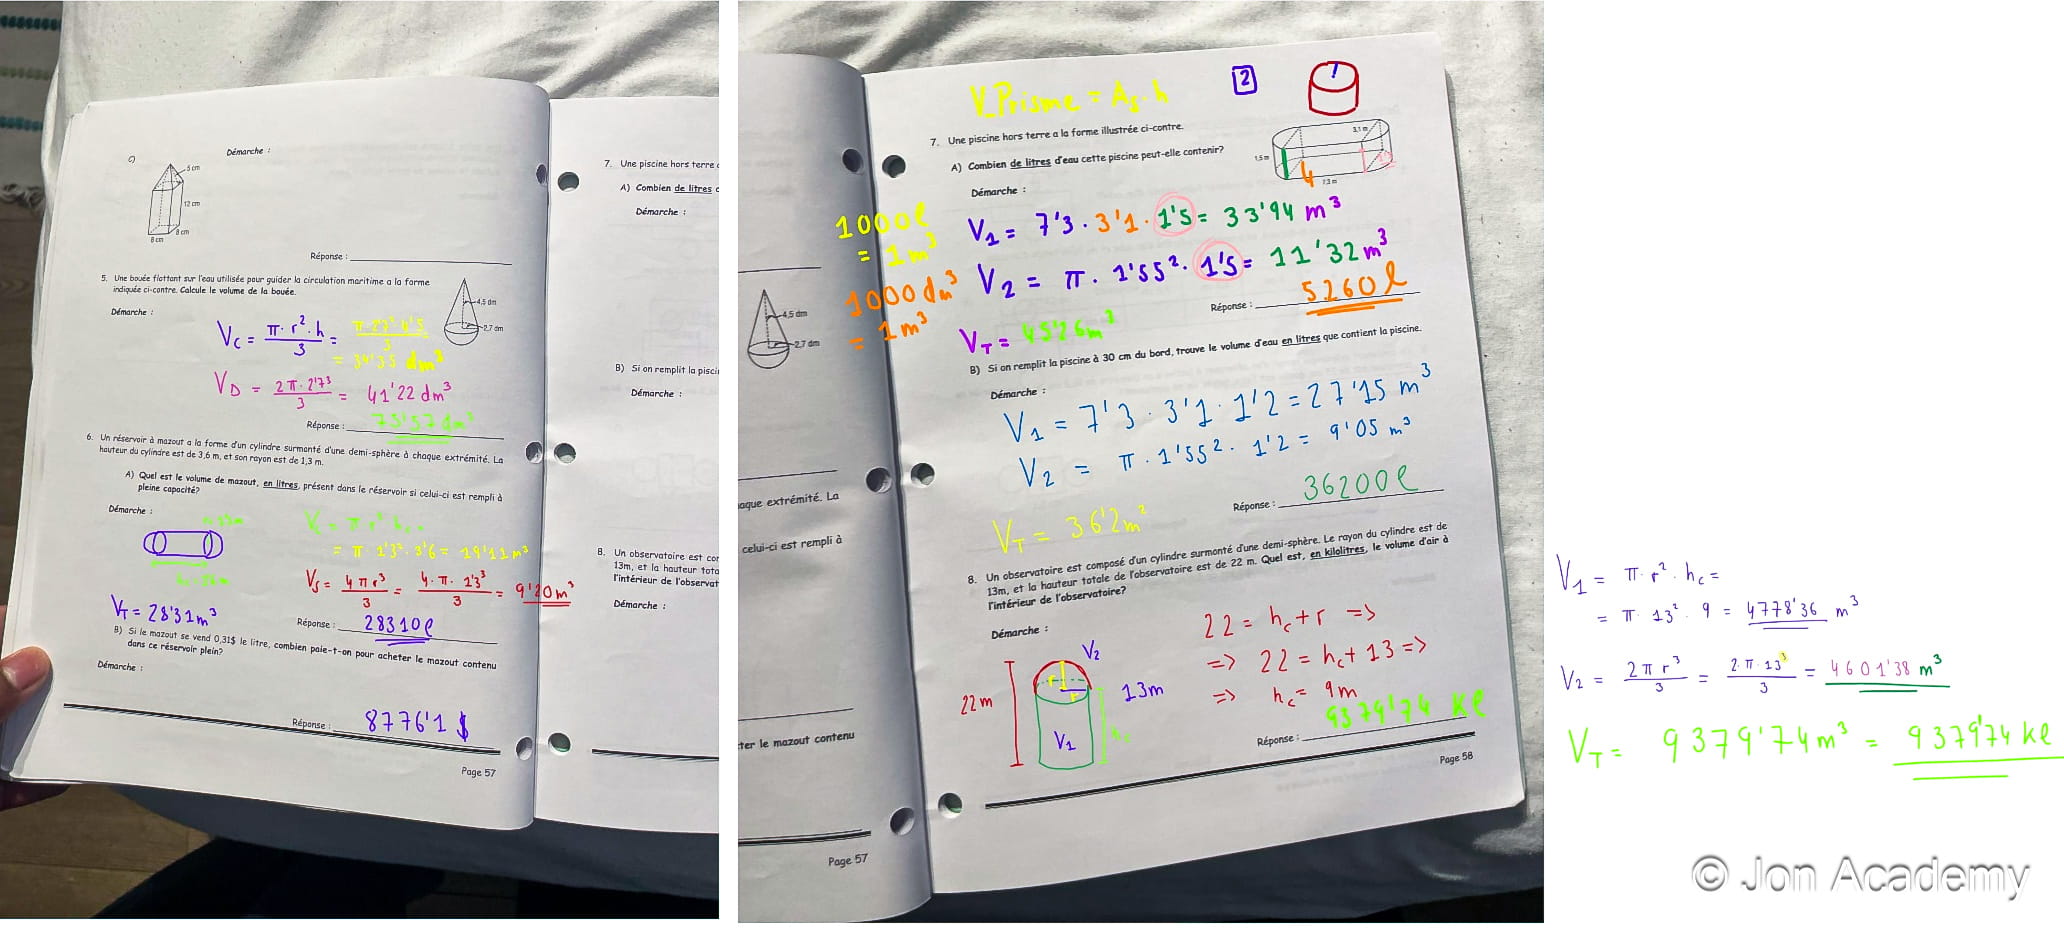 c)
Démarche :
5 cm
12 cm
8 cm
8 cm
Réponse :
5. Une bouée flottant sur l'eau utilisée pour guider la circulation maritime a la forme
indiquée ci-contre. Calcule le volume de la bouée.
4,5 dm
2,7 dm
Démarche :
V_C = π·r²·h / 3 = π·2'7²·4'5 / 3
= 34'35 dm³
V_D = 2π·2'7³ / 3 = 41'22 dm³
Réponse : 75'57 dm³
6. Un réservoir à mazout a la forme d'un cylindre surmonté d'une demi-sphère à chaque extrémité. La
hauteur du cylindre est de 3,6 m, et son rayon est de 1,3 m.
A) Quel est le volume de mazout, en litres, présent dans le réservoir si celui-ci est rempli à
pleine capacité?
Démarche :
= π·1'3²·3'6 = 19'11 m³
V_S = 4πr³ / 3 = 4·π·1'3³ / 3 = 9'20 m³
V_T = 28'31 m³
Réponse : 28310 l
B) Si le mazout se vend 0,31$ le litre, combien paie-t-on pour acheter le mazout contenu
dans ce réservoir plein?
Démarche :
Réponse : 8776'1 $
Page 57
7. Une piscine hors terre
A) Combien de litres
Démarche :
B) Si on remplit la pisci
Démarche :
8. Un observatoire est co
13m, et la hauteur tota
l'intérieur de l'observat
Démarche :
4,5 dm
2,7 dm
aque extrémité. La
celui-ci est rempli à
ter le mazout contenu
Page 57
V_Prisme = A_b · h
2
7. Une piscine hors terre a la forme illustrée ci-contre.
A) Combien de litres d'eau cette piscine peut-elle contenir?
3,1 m
1,5 m
7,3 m
Démarche :
1000 l
= 1 m³
1000 dm³
= 1 m³
V₁ = 7'3 · 3'1 · 1'5 = 33'94 m³
V₂ = π · 1'55² · 1'5 = 11'32 m³
V_T = 45'26 m³
Réponse : 5260 l
B) Si on remplit la piscine à 30 cm du bord, trouve le volume d'eau en litres que contient la piscine.
Démarche :
V₁ = 7'3 · 3'1 · 1'2 = 27'15 m³
V₂ = π · 1'55² · 1'2 = 9'05 m³
V_T = 36'2 m²
Réponse : 36200 l
8. Un observatoire est composé d'un cylindre surmonté d'une demi-sphère. Le rayon du cylindre est de
13m, et la hauteur totale de l'observatoire est de 22 m. Quel est, en kilolitres, le volume d'air à
l'intérieur de l'observatoire?
Démarche :
22 = h_c + r =>
=> 22 = h_c + 13 =>
=> h_c = 9 m
V₂
r
r
22 m
13 m
V₁
h_c
Réponse : 9379'74 kl
Page 58
V₁ = π·r²·h_c =
= π·13²·9 = 4778'36 m³
V₂ = 2πr³ / 3 = 2·π·13³ / 3 = 4601'38 m³
V_T = 9379'74 m³ = 9379'74 kl
© Jon Academy